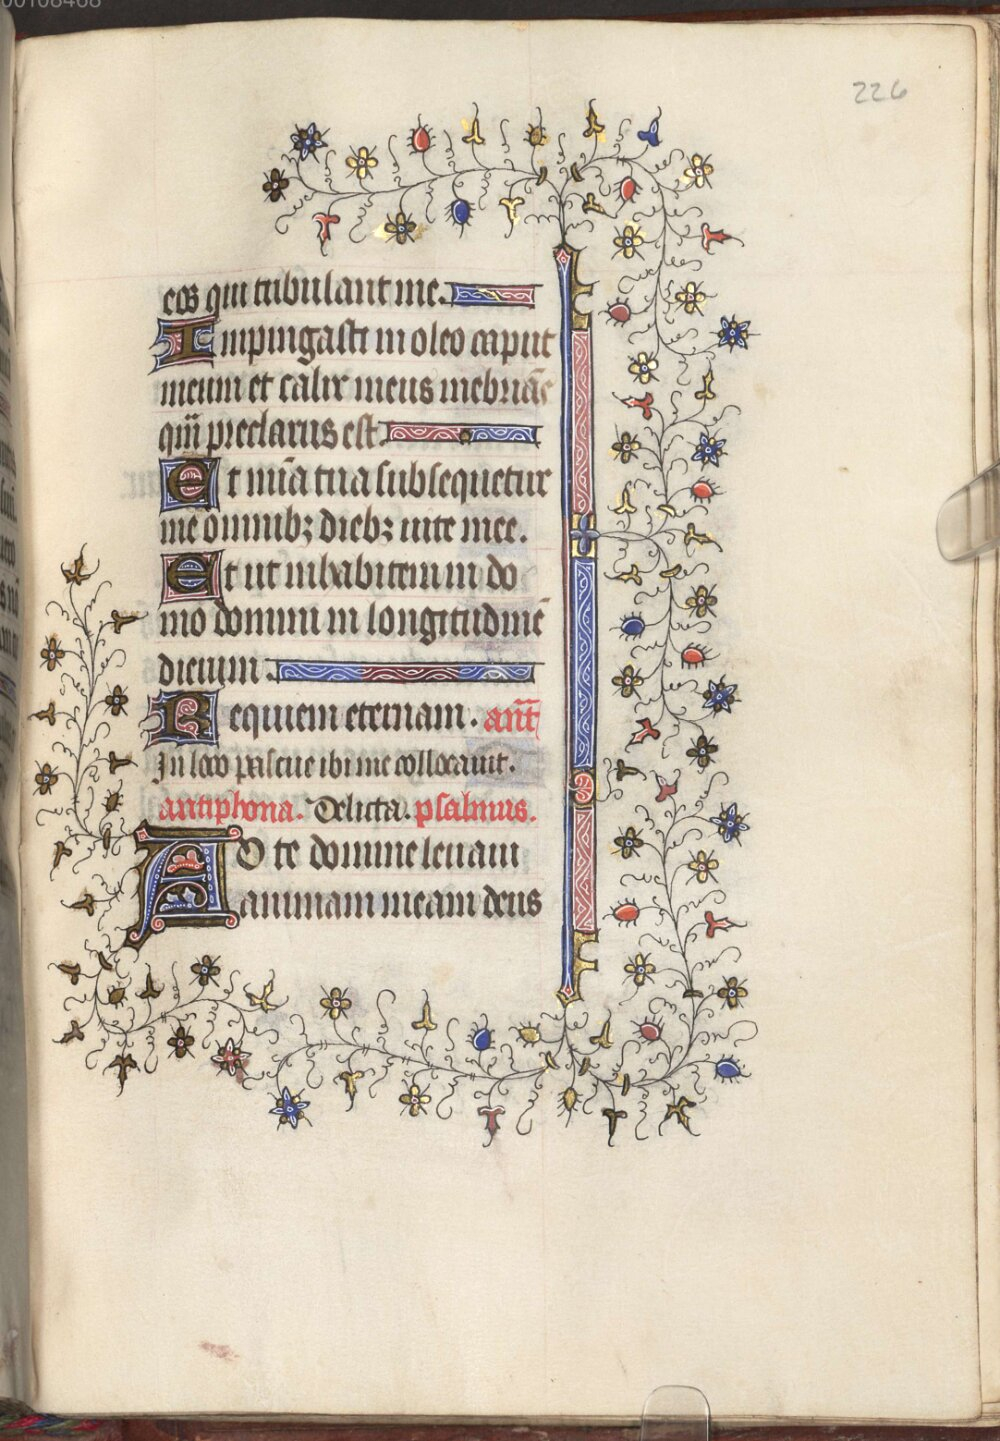 226
eos qui tribulant me.
Impingasti in oleo caput
meum et calix meus inebriãs
qm̃ preclarus est.
Et mĩa tua subsequetur
me omnibꝫ diebꝫ uite mee.
Et ut inhabitem in do
mo domini in longitudinẽ
dierum.
Requiem eternam. ant̃
In loco pascue ibi me collocauit.
antiphona. Delicta. psalmus.
AD te domine leuaui
animam meam deus